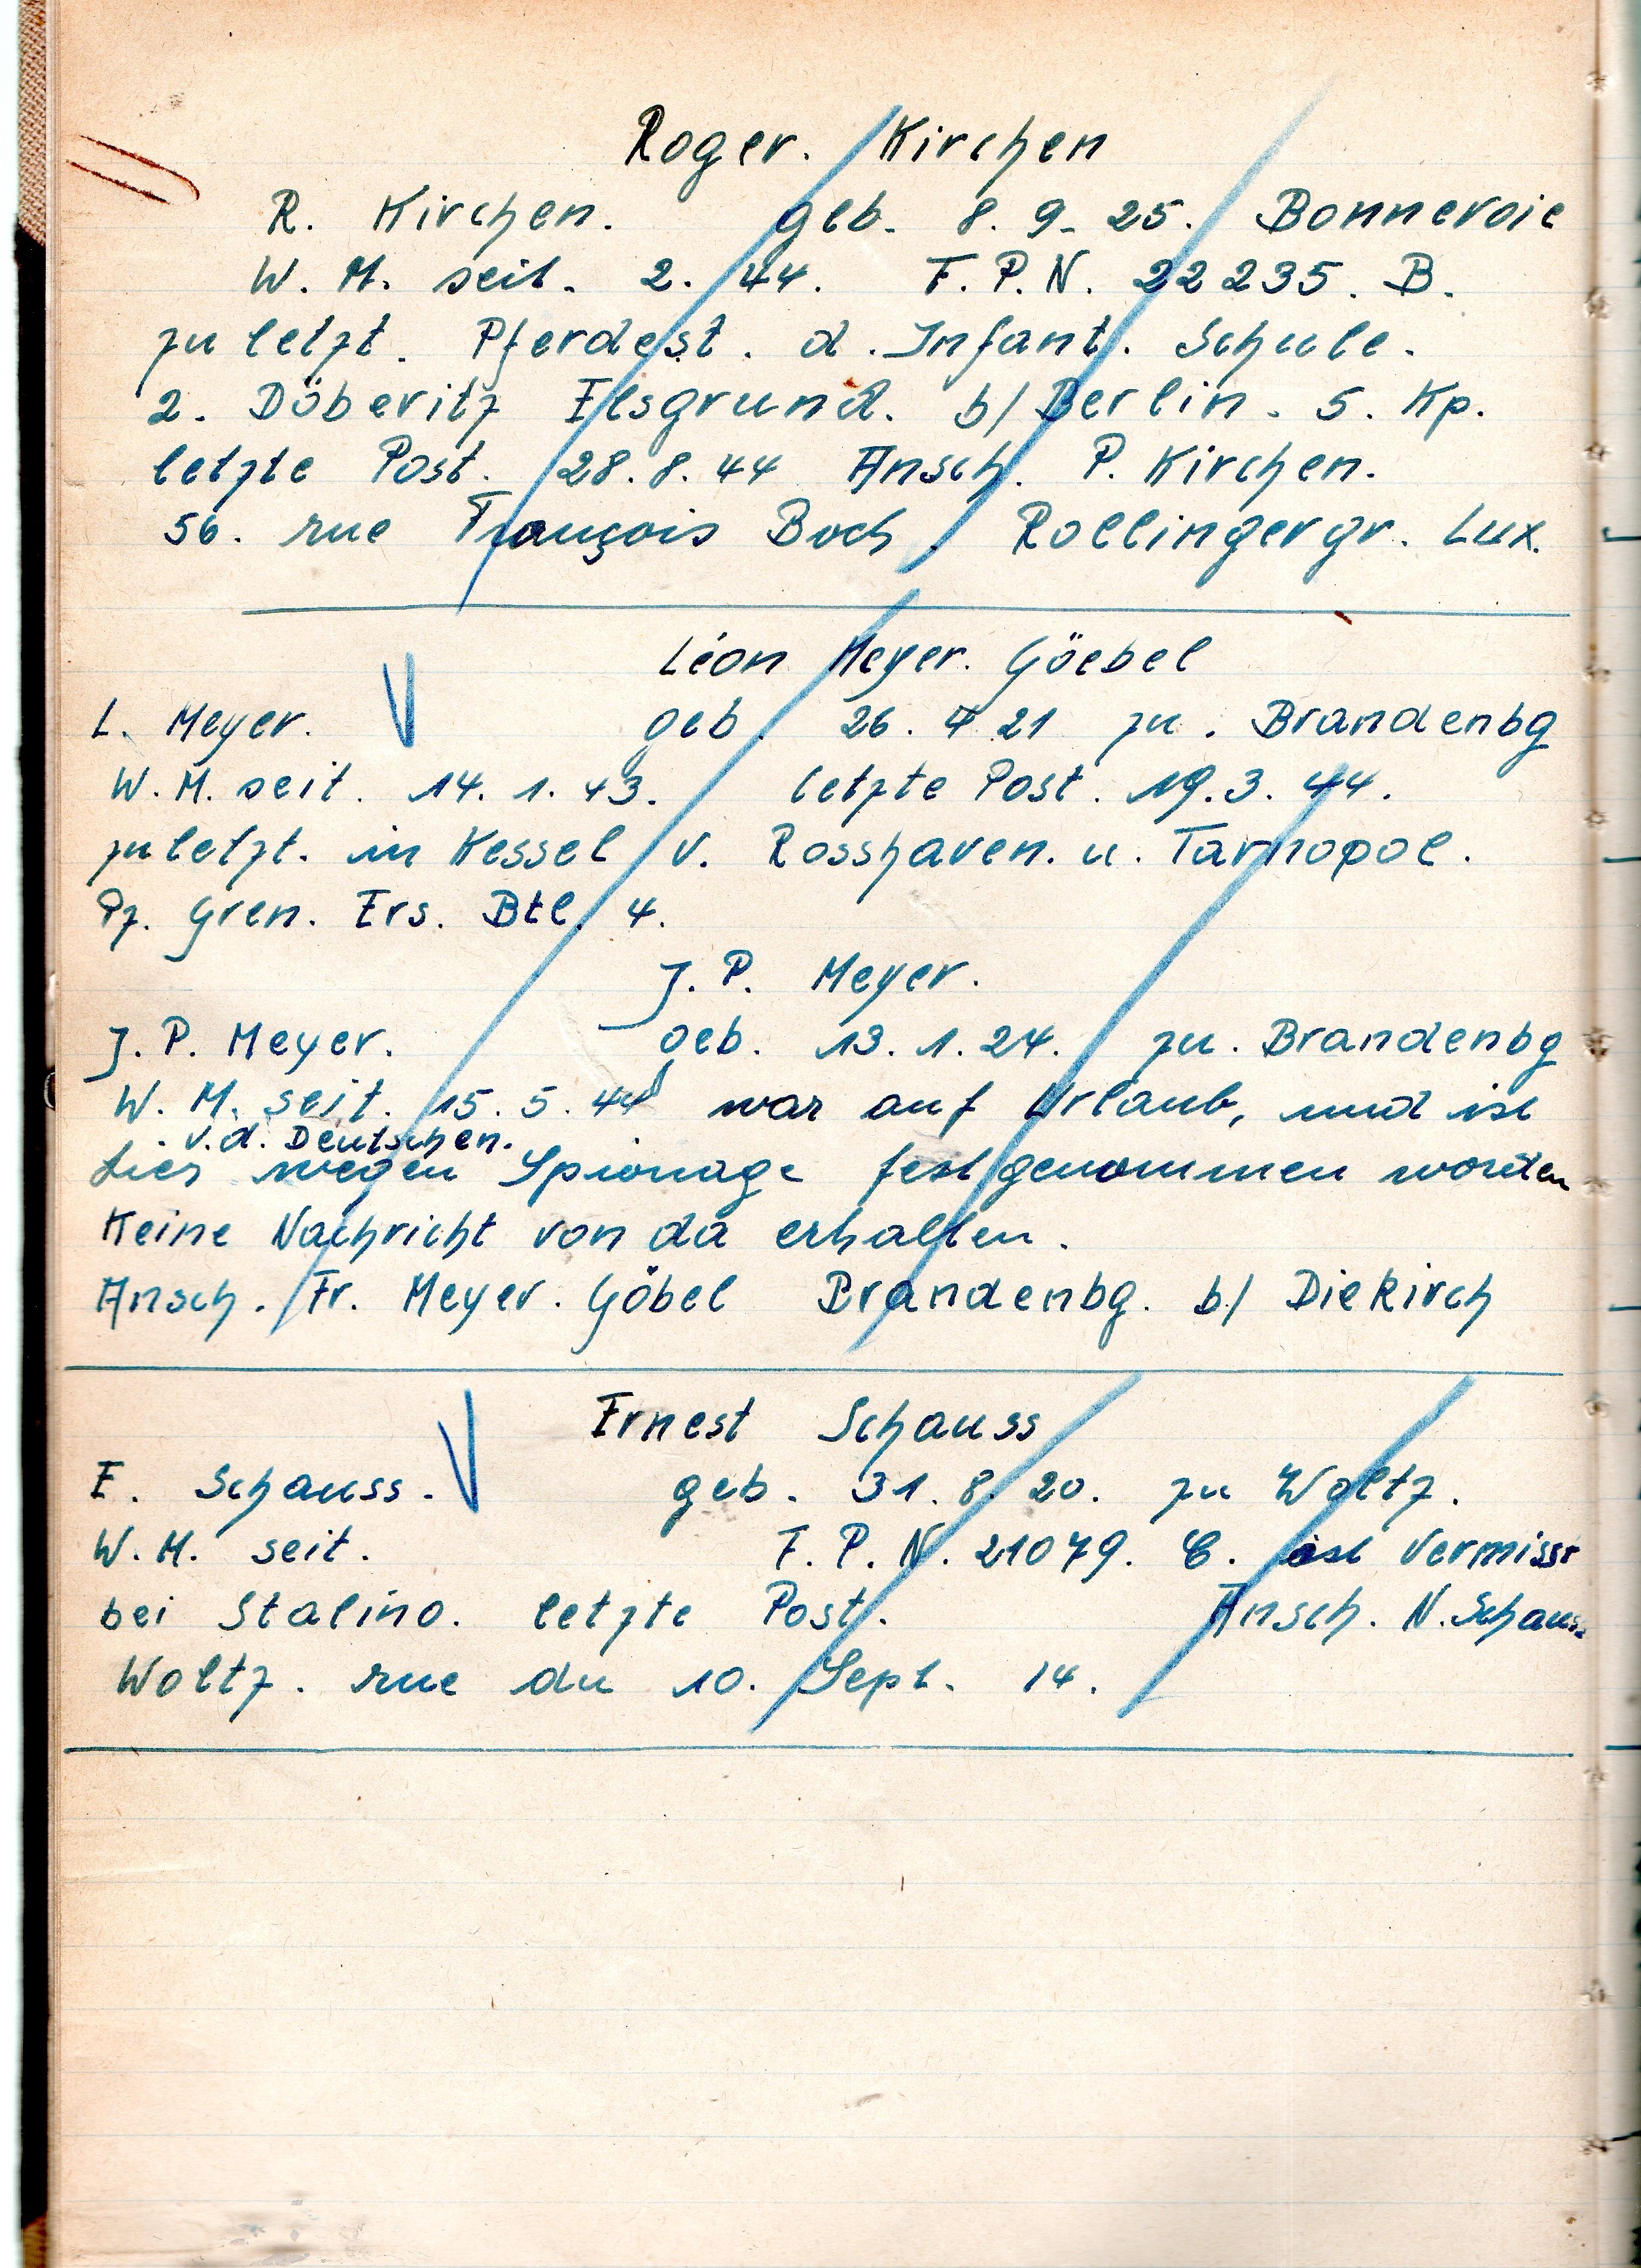 Roger. Kirchen
R. Kirchen. geb. 8. 9. 25. Bonnevoie
W. M. seit. 2. 44. F. P. N. 22235. B.
zu letzt. Pferdest. d. Infant. Schule.
2. Döberitz Elsgrund. b/ Berlin. 5. Kp.
letzte Post. 28. 8. 44 Ansch. P. Kirchen.
56. rue François Boch. Rollingergr. Lux.
Léon Meyer. Göebel
L. Meyer. geb. 26. 4 21 zu. Brandenbg
W. M. seit. 14. 1. 43. letzte Post. 19. 3. 44.
zu letzt. in Kessel v. Rosshaven. u. Tarnopol.
Pz. Gren. Ers. Btl. 4.
J. P. Meyer.
J. P. Meyer. geb. 13. 1. 24. zu. Brandenbg
W. M. seit. 15. 5. 44 war auf Urlaub, und ist
v. d. Deutschen.
hier wegen Spionage festgenommen worden
Keine Nachricht von da erhalten.
Ansch. Fr. Meyer. Göbel Brandenbg. b/ Diekirch
Ernest Schauss
E. Schauss. geb. 31. 8. 20. zu Woltz.
W. M. seit. F. P. N. 21079. C. ist Vermisst
bei Stalino. letzte Post. Ansch. N. Schauss
Woltz. rue du 10. Sept. 14.